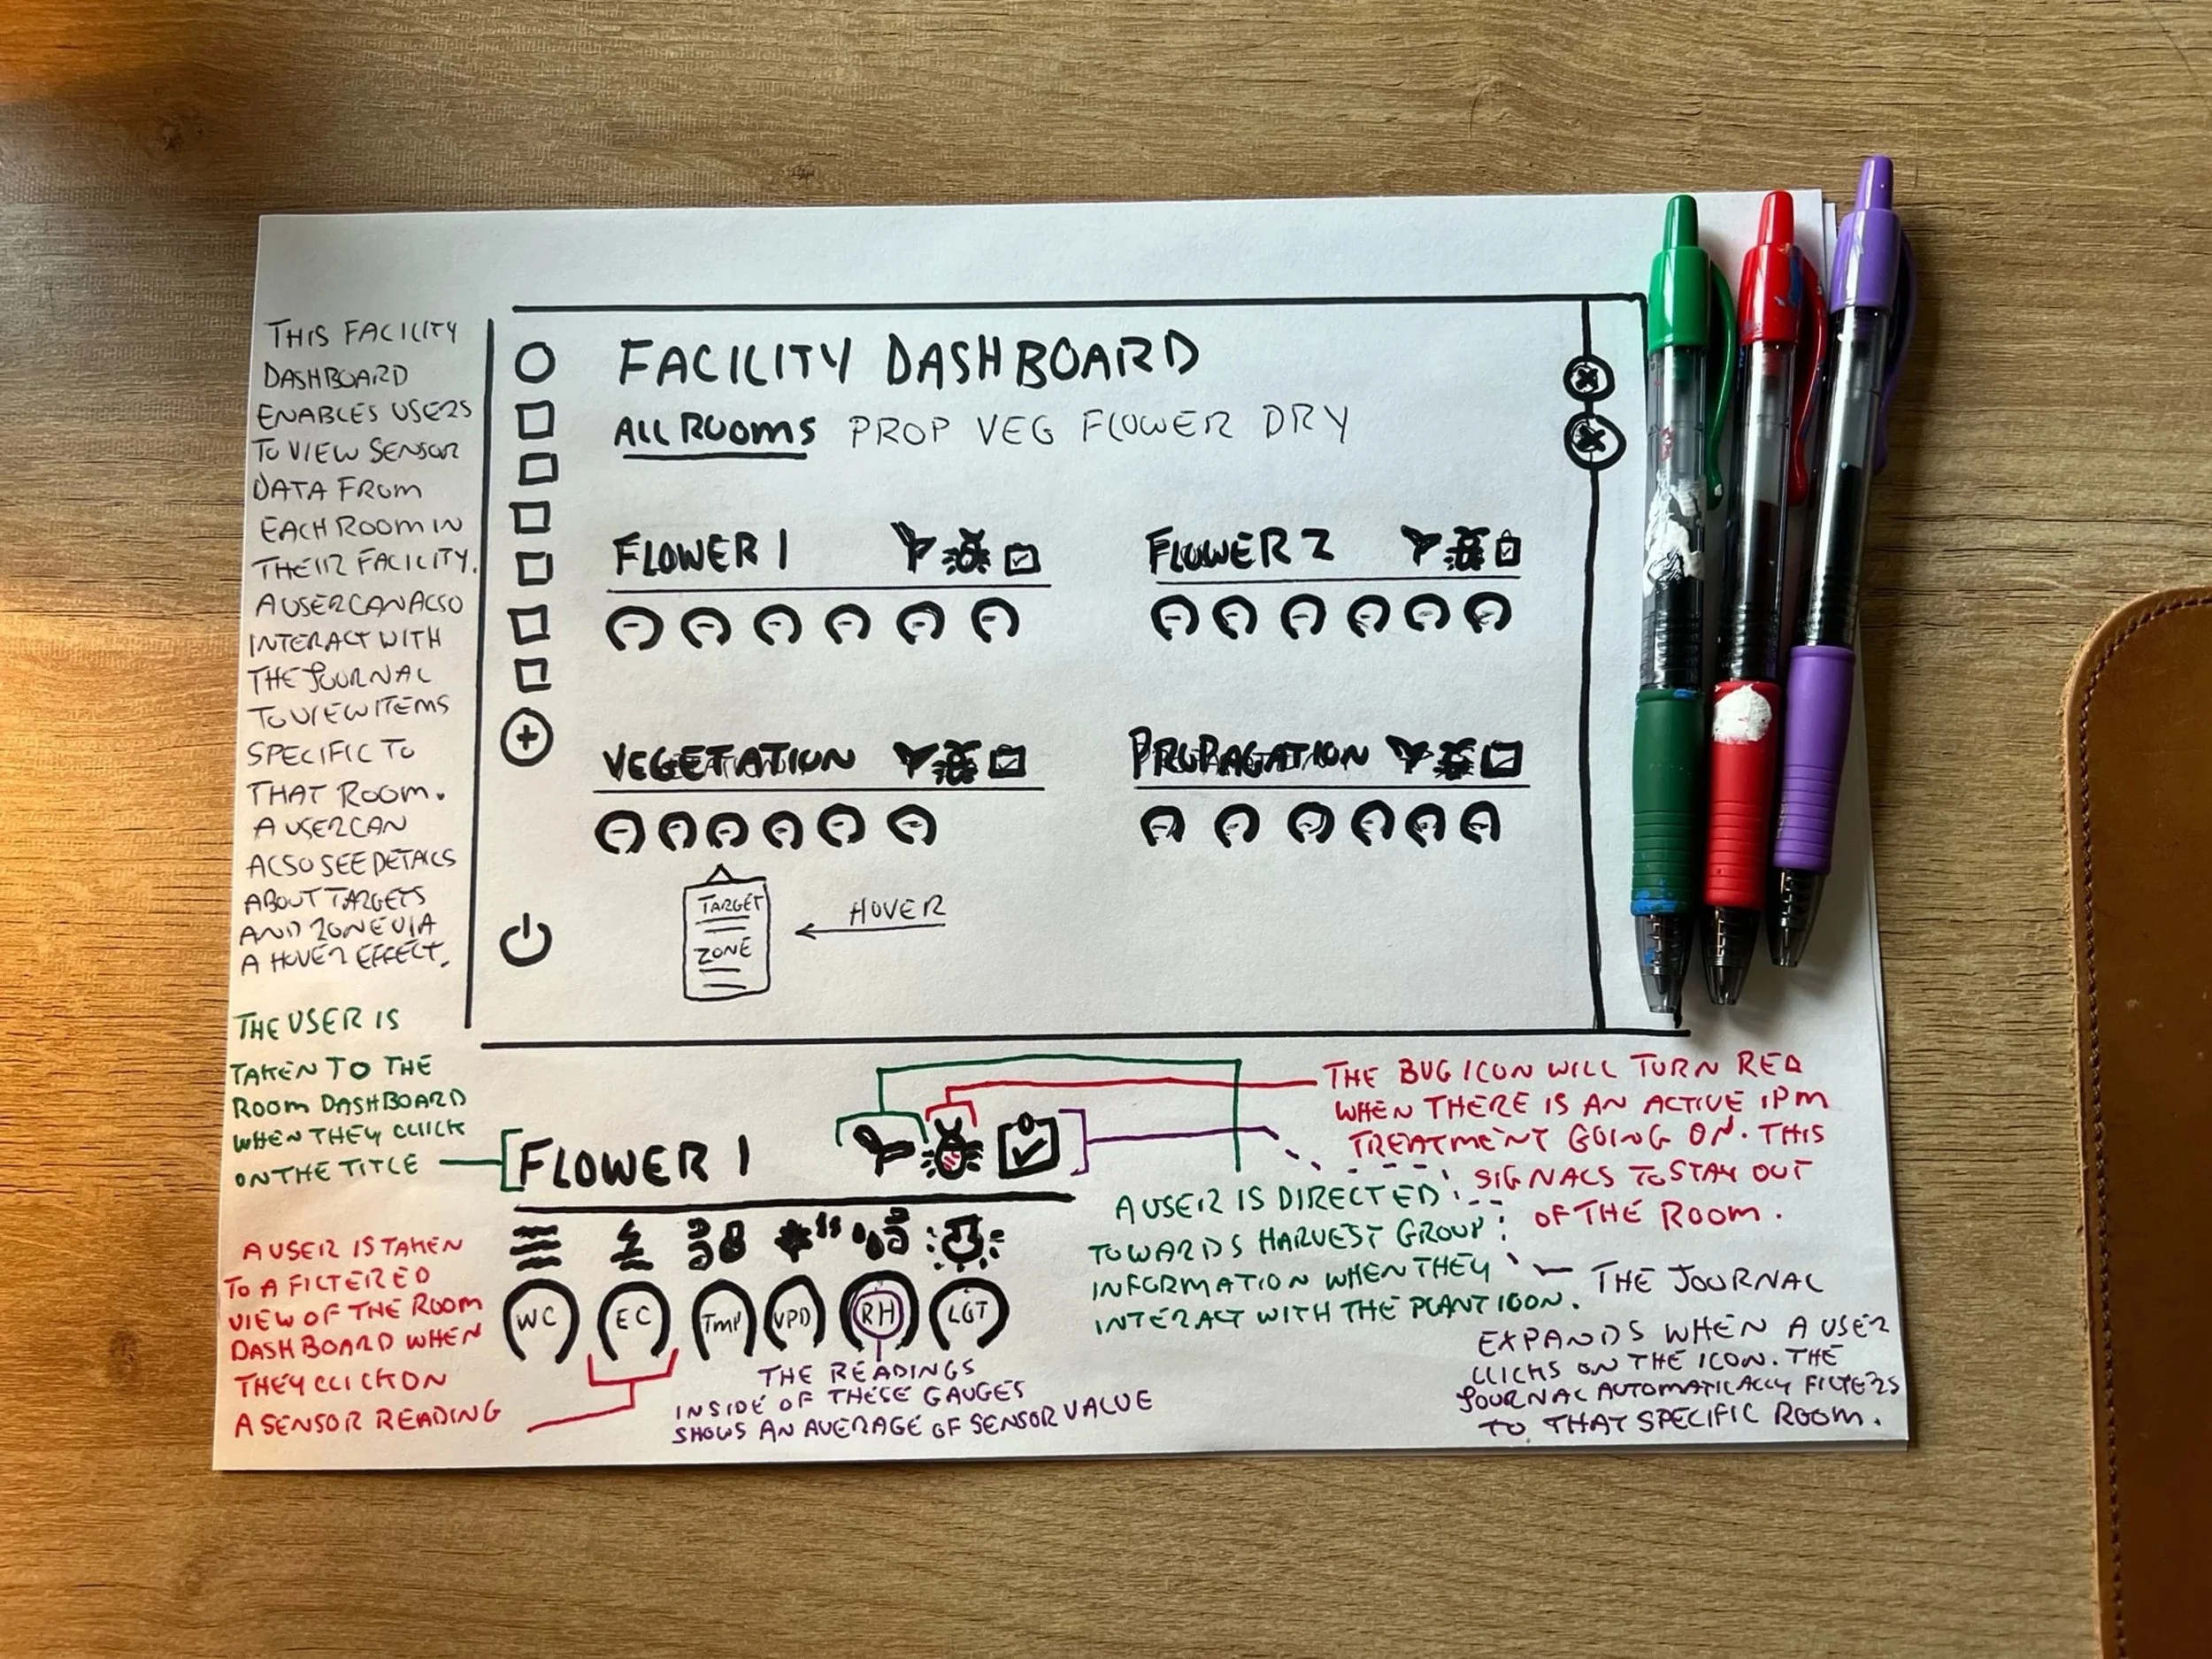 THIS FACILITY
DASHBOARD
ENABLES USERS
TO VIEW SENSOR
DATA FROM
EACH ROOM IN
THEIR FACILITY.
A USER CAN ALSO
INTERACT WITH
THE JOURNAL
TO VIEW ITEMS
SPECIFIC TO
THAT ROOM.
A USER CAN
ALSO SEE DETAILS
ABOUT TARGETS
AND ZONE VIA
A HOVER EFFECT.
FACILITY DASHBOARD
ALL ROOMS PROP VEG FLOWER DRY
FLOWER 1
FLOWER 2
VEGETATION
PROPAGATION
TARGET
ZONE
HOVER
THE USER IS
TAKEN TO THE
ROOM DASHBOARD
WHEN THEY CLICK
ON THE TITLE
FLOWER 1
WC EC TMP VPD RH LGT
A USER IS TAKEN
TO A FILTERED
VIEW OF THE ROOM
DASHBOARD WHEN
THEY CLICK ON
A SENSOR READING
THE READINGS
INSIDE OF THESE GAUGES
SHOWS AN AVERAGE OF SENSOR VALUE
A USER IS DIRECTED
TOWARDS HARVEST GROUP
INFORMATION WHEN THEY
INTERACT WITH THE PLANT ICON.
THE BUG ICON WILL TURN RED
WHEN THERE IS AN ACTIVE IPM
TREATMENT GOING ON. THIS
SIGNALS TO STAY OUT
OF THE ROOM.
THE JOURNAL
EXPANDS WHEN A USER
CLICKS ON THE ICON. THE
JOURNAL AUTOMATICALLY FILTERS
TO THAT SPECIFIC ROOM.